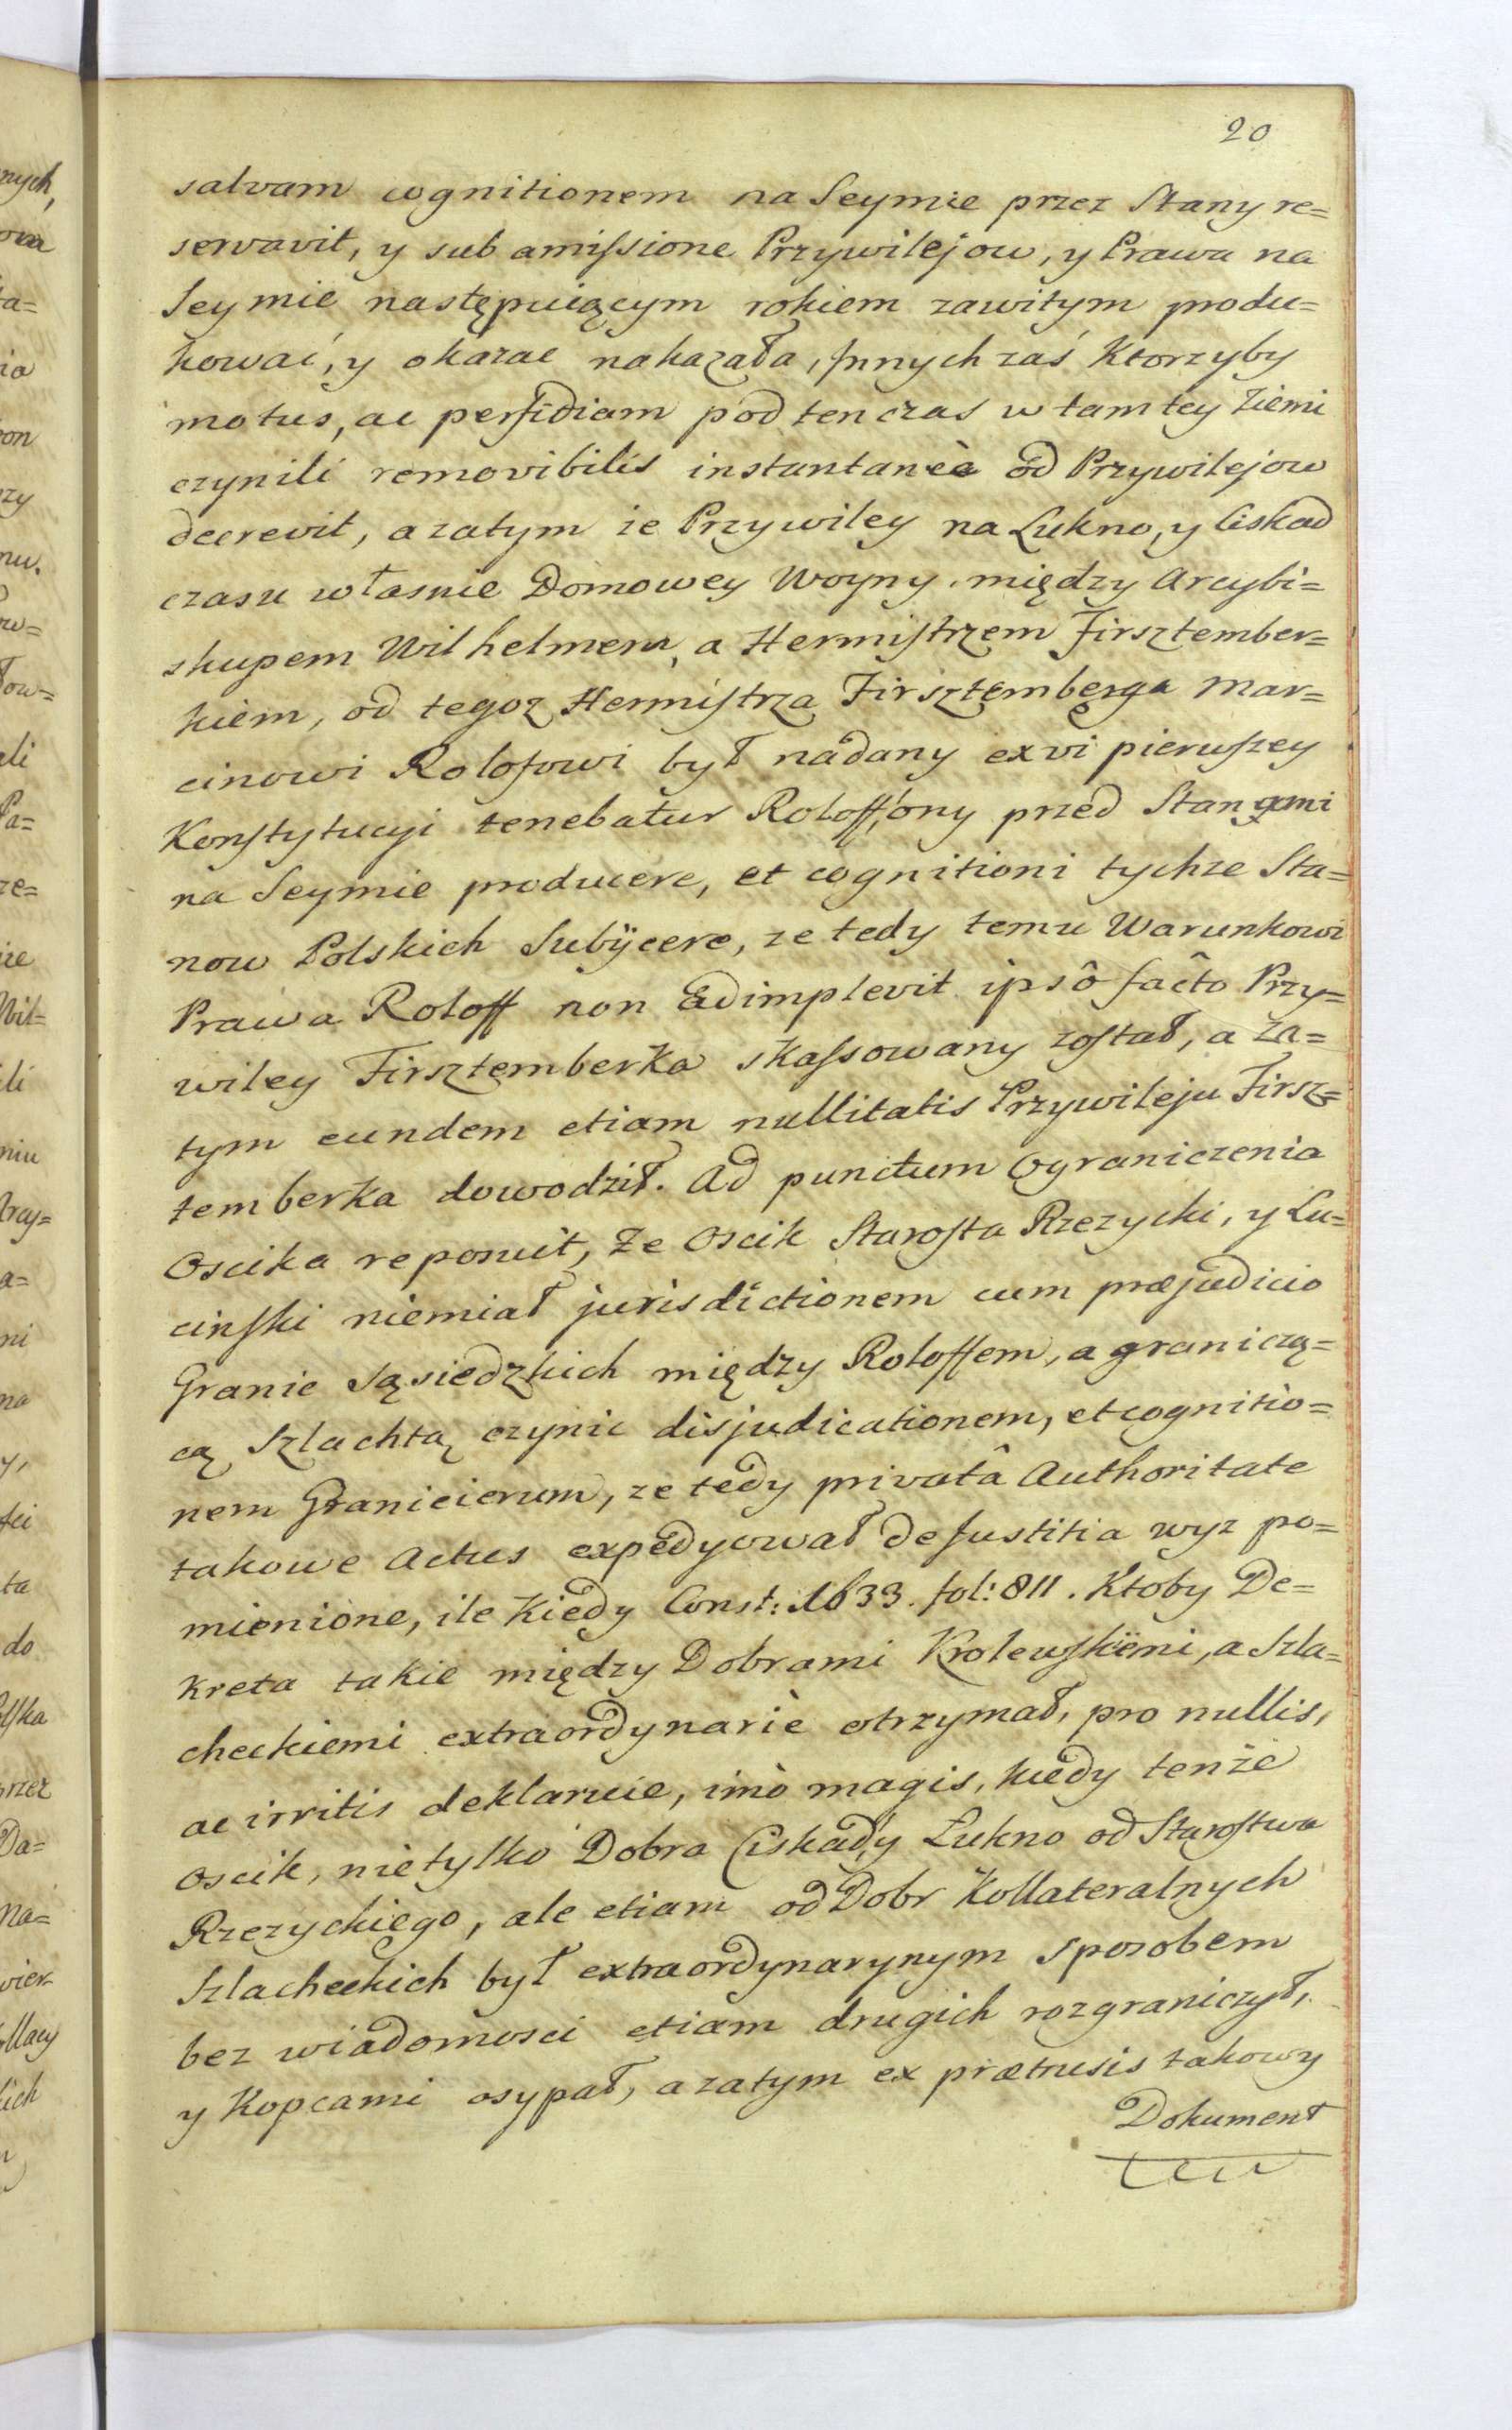 20
salvam cognitionem na Seymie przez Stany re=
servavit, y sub amissione Przywilejow, y Prawa na
Seymie następuiącym rokiem zawitym produ=
kować, y okazac nakazała, Jnnych zaś Ktorzyby
motus, ac perfidiam pod ten czas w tamtey Ziemi
czynili removibilis instantanèe od Przywilejow
decrevit, a zatym ie Przywiley na Lukno, y Ciskad
czasu własnie Domowey Woyny, między Arcybi=
skupem Wilhelmem, a Hermistrzem Firsztember=
kiem, od tegoz Hermistrza Firsztembęrga Mar=
cinowi Rolofowi był nadany ex vi pierwszey
Konstytucyi tenebatur Roloff, ony przed Stanami
na Seymie producere, et cognitioni tychze Sta=
now Polskich Subÿcere, ze tedy temu Warunkowi
Prawa Roloff non Edimplevit ipsô factô Przy=
wiley Firsztęmberka skassowany został, a Za=
tym eundem etiam nullitatis Przywileju Firsz=
temberka dowodził. Ad punctum Ograniczenia
Oscika reponuit, Ze Oscik Starosta Rzezycki, y Lu=
cinski niemiał jurisdictionem cum præjudicio
Granic Sąsiedzkich między Roloffem, a graniczą=
cą Szlachtą czynic disjudicationem, et cognitio=
nem Granicierum, ze tedy privatâ Authoritate
takowe Actus expedyował de Justitia wyz po=
mienione, ile Kiedy Const: 1633. fol: 811. Ktoby De=
kreta takie między Dobrami Krolewskiemi, a Szla=
checkiemi extraordynariè otrzymał, pro nullis,
ac irritis deklaruie, imò magis, kiedy tenże
Oscik, nie tylko Dobra Ciskad, y Łukno od Starostwa
Rzezyckiego, ale etiam od Dobr Kollateralnych
Szlacheckich był extraordynarynym sposobem
bez wiadomosci etiam drugich rozgraniczył,
y Kopcami osypał, a zatym ex prætensis takowy
Dokument